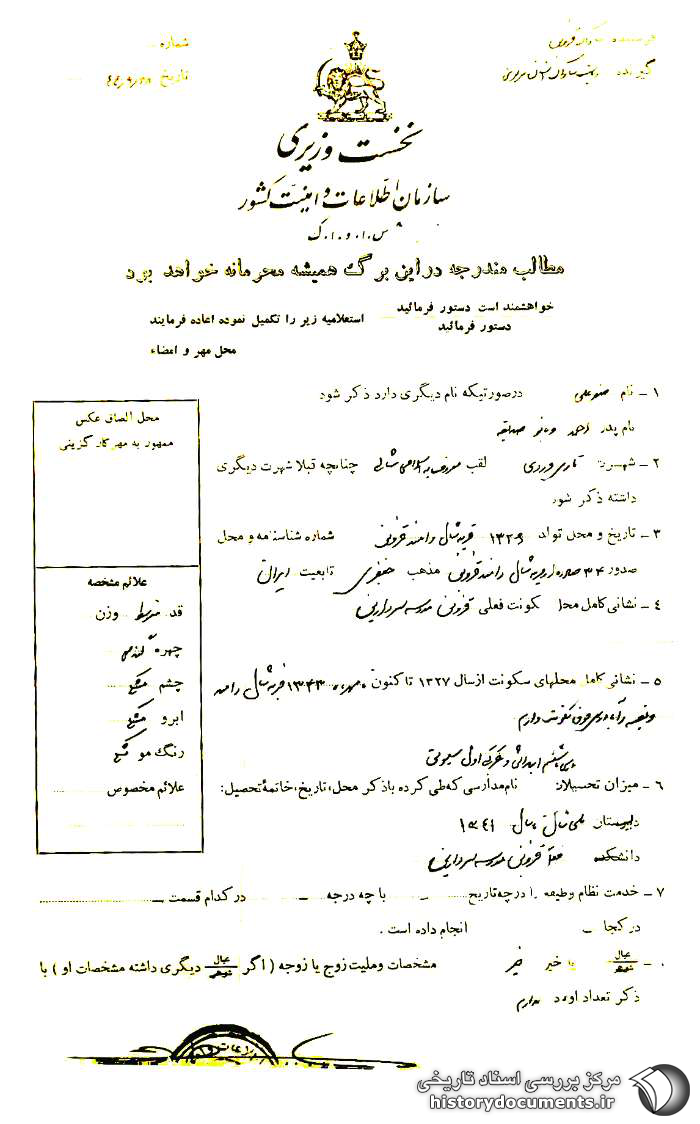 فرستنده
شماره
گیرنده
تاریخ
نخست وزیری
سازمان اطلاعات و امنیت کشور
مطالب مندرجه در این برگ همیشه محرمانه خواهد بود
خواهشمند است دستور فرمائید
دستور فرمائید
استعلامیه زیر را تکمیل نموده اعاده فرمایند
محل مهر و امضاء
۱ - نام صفرعلی درصورتیکه نام دیگری دارد ذکر شود
نام پدر احمد و مادر صدیقه
۲ - شهرت لقب چنانچه قبلا شهرت دیگری
داشته ذکر شود
۳ - تاریخ و محل تولد قریه شال رامند قزوین شماره شناسنامه و محل
صدور ۳۴ صادره از قریه شال رامند قزوین مذهب جعفری تابعیت ایران
۴ - نشانی کامل محل سکونت فعلی قزوین مدرسه سردارین
۵ - نشانی کامل محلهای سکونت از سال ۱۳۲۷ تا کنون ۱۳۴۳ قریه شال رامند
سکونت دارم
ششم ابتدائی اول
۶ - میزان تحصیلات نام مدارسی که طی کرده با ذکر محل، تاریخ، خاتمهٔ تحصیل:
دبیرستان سال ۱۳۴۱
دانشکده فعلا قزوین مدرسه سردارین
۷ - خدمت نظام وظیفه را درچه تاریخ با چه درجه در کدام قسمت
در کجا انجام داده است.
عیال
شوهر
یا خیر خیر مشخصات و ملیت زوج یا زوجه ( اگر عیال
شوهر
دیگری داشته مشخصات او ) با
ذکر تعداد اولاد ندارم
محل الصاق عکس
ممهور به مهر کارگزینی
علائم مشخصه
قد متوسط وزن
چهره گندمی
چشم مشکی
ابرو مشکی
رنگ مو مشکی
علائم مخصوص
مرکز بررسی اسناد تاریخی
historydocuments.ir